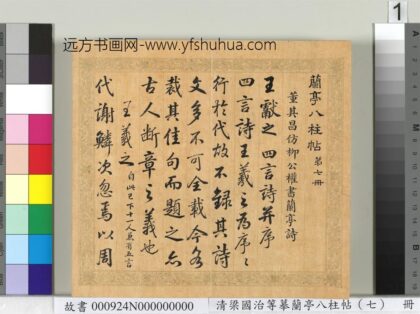 1
远方书画网-www.yfshuhua.com
蘭亭八柱帖 第七冊
董其昌仿柳公權書蘭亭詩
王獻之四言詩并序
四言詩王羲之為序序
行於代故不錄其詩
文多不可全載今各
裁其佳句而題之亦
古人斷章之義也
王羲之 自此已下十一人並有五言
代謝鱗次忽焉以周
故書 000924N000000000 清梁國治等摹蘭亭八柱帖(七) 冊